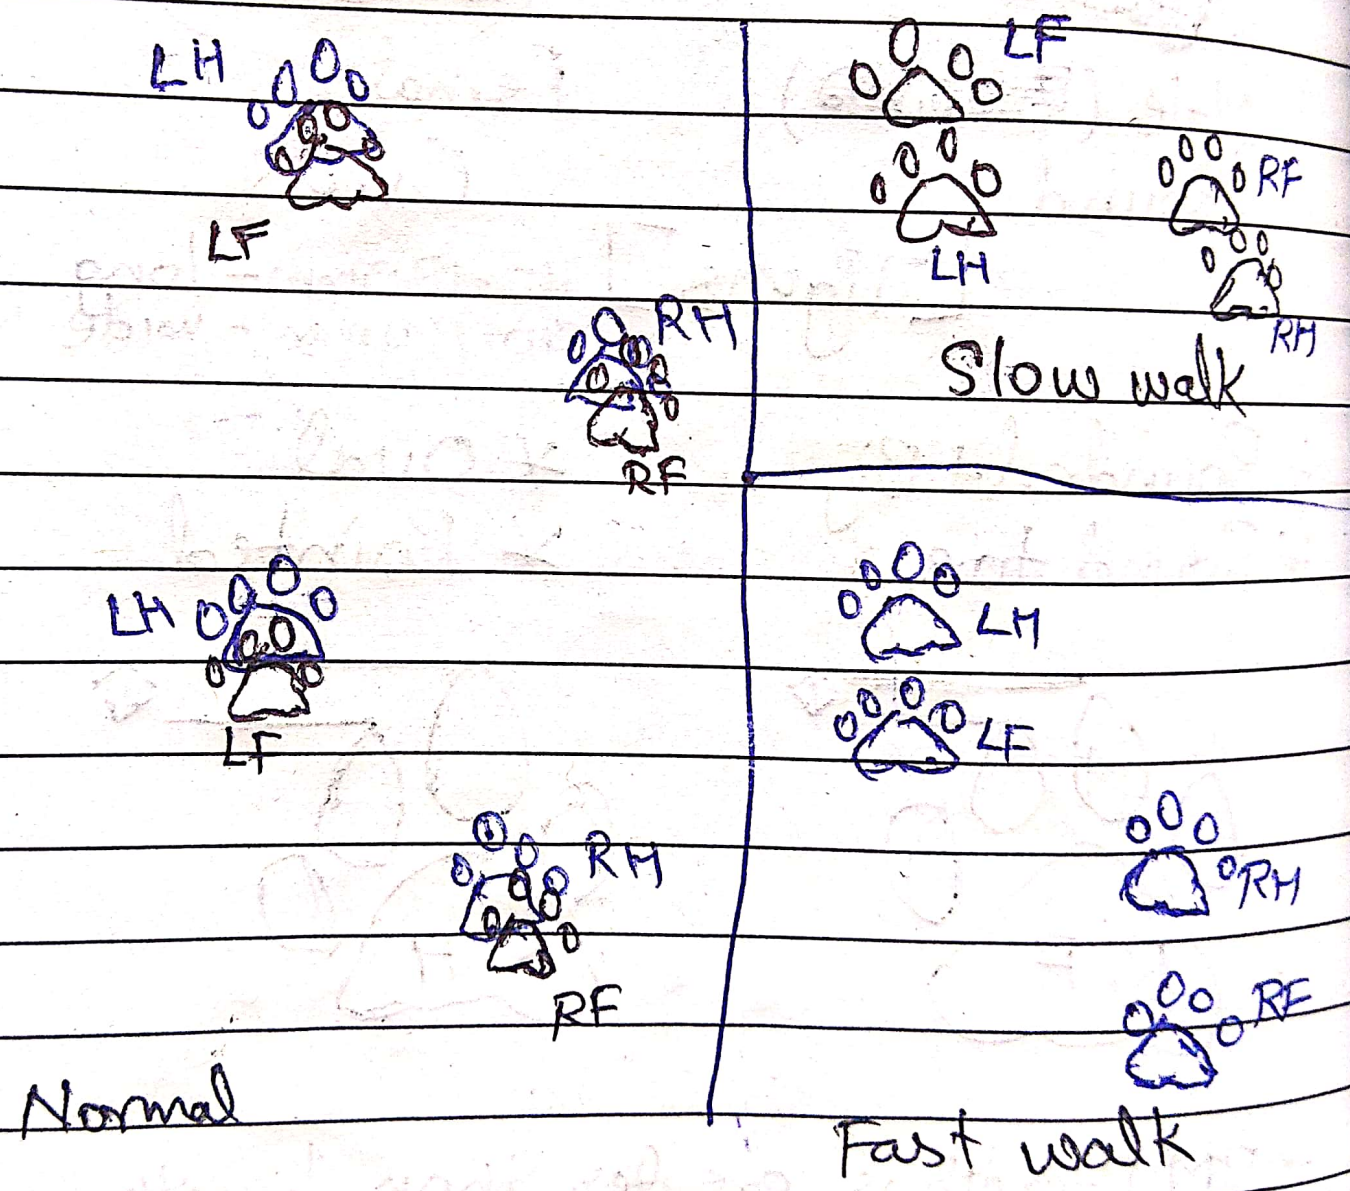 LH
LF
RH
RF
LH
LF
RH
RF
Normal
LF
LH
RF
RH
Slow walk
LH
LF
RH
RF
Fast walk